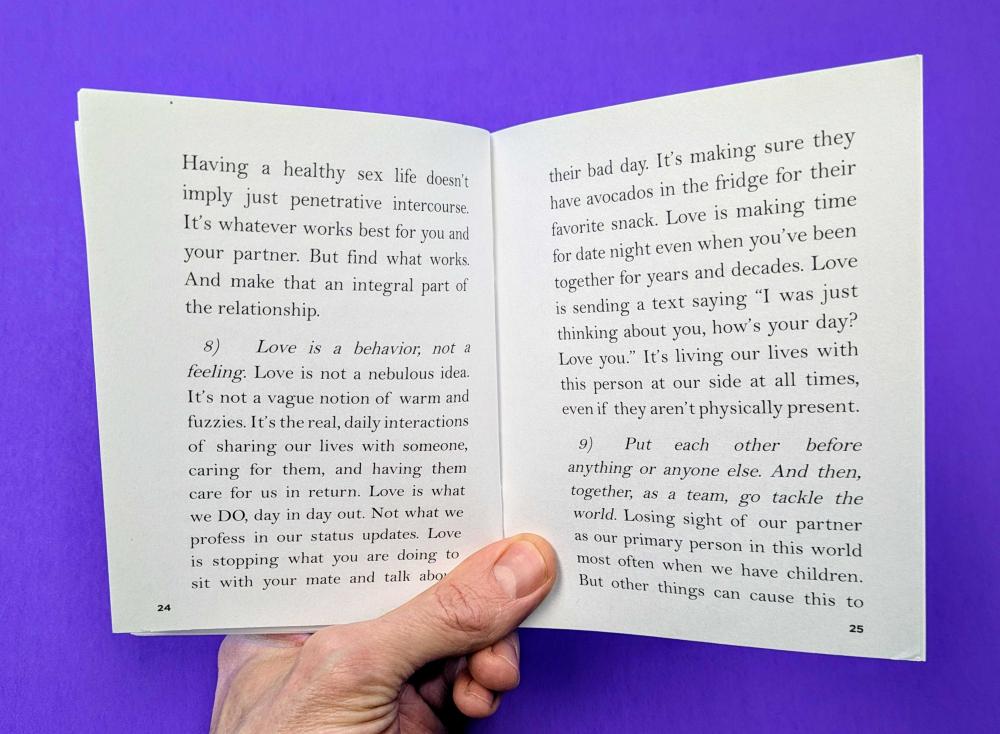 Having a healthy sex life doesn't
imply just penetrative intercourse.
It's whatever works best for you and
your partner. But find what works.
And make that an integral part of
the relationship.
8) Love is a behavior, not a
feeling. Love is not a nebulous idea.
It's not a vague notion of warm and
fuzzies. It's the real, daily interactions
of sharing our lives with someone,
caring for them, and having them
care for us in return. Love is what
we DO, day in day out. Not what we
profess in our status updates. Love
is stopping what you are doing to
sit with your mate and talk
24
their bad day. It's making sure they
have avocados in the fridge for their
favorite snack. Love is making time
for date night even when you've been
together for years and decades. Love
is sending a text saying “I was just
thinking about you, how's your day?
Love you.” It's living our lives with
this person at our side at all times,
even if they aren't physically present.
9) Put each other before
anything or anyone else. And then,
together, as a team, go tackle the
world. Losing sight of our partner
as our primary person in this world
most often when we have children.
But other things can cause this to
25